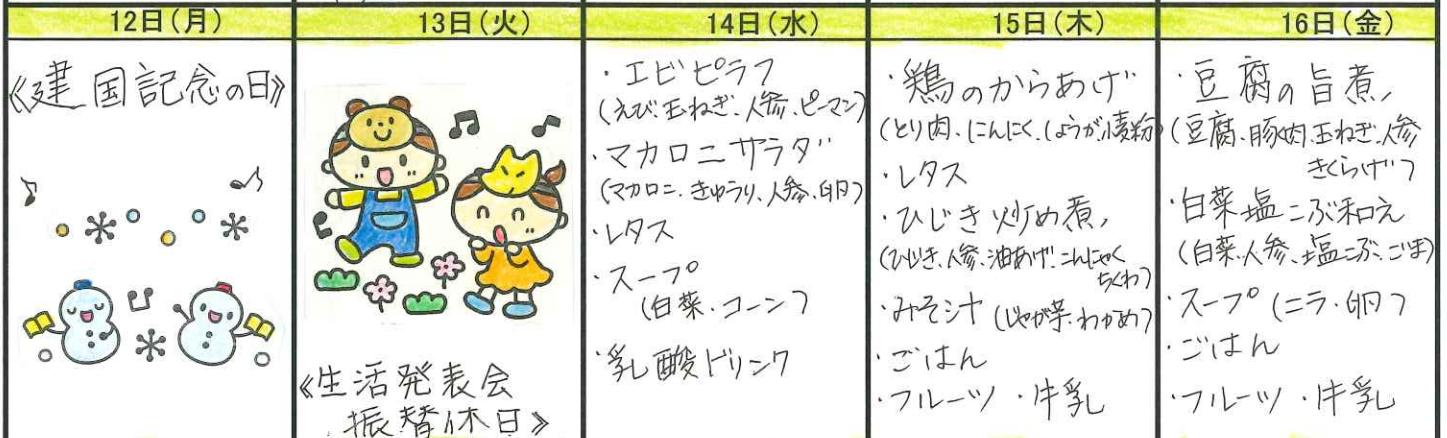 12日(月)
《建国記念の日》
13日(火)
《生活発表会
振替休日》
14日(水)
・エビピラフ
(えび、玉ねぎ、人参、ピーマン)
・マカロニサラダ
(マカロニ、きゅうり、人参、卵)
・レタス
・スープ
(白菜・コーン)
・乳酸ドリンク
15日(木)
・鶏のからあげ
(とり肉、にんにく、しょうが、小麦粉)
・レタス
・ひじき炒め煮
(ひじき、人参、油あげ、こんにゃく
ちくわ)
・みそ汁(じゃが芋、わかめ)
・ごはん
・フルーツ・牛乳
16日(金)
・豆腐の旨煮
(豆腐、豚肉、玉ねぎ、人参
きくらげ)
・白菜塩こぶ和え
(白菜、人参、塩こぶ、ごま)
・スープ(ニラ・卵)
・ごはん
・フルーツ・牛乳